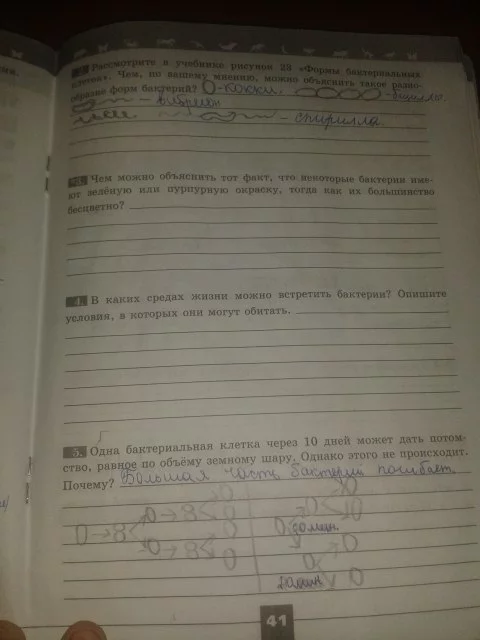 Рассмотрите в учебнике рисунок 28 «Формы бактериальных
клеток». Чем, по вашему мнению, можно объяснить такое разно-
образие форм бактерий? О-кокки. -бациллы.
- вибрион
- спирилла.
3. Чем можно объяснить тот факт, что некоторые бактерии име-
ют зелёную или пурпурную окраску, тогда как их большинство
бесцветно?
4. В каких средах жизни можно встретить бактерии? Опишите
условия, в которых они могут обитать.
5. Одна бактериальная клетка через 10 дней может дать потом-
ство, равное по объёму земному шару. Однако этого не происходит.
Почему? Большая часть бактерий погибает.
20 мин.
20 мин
41